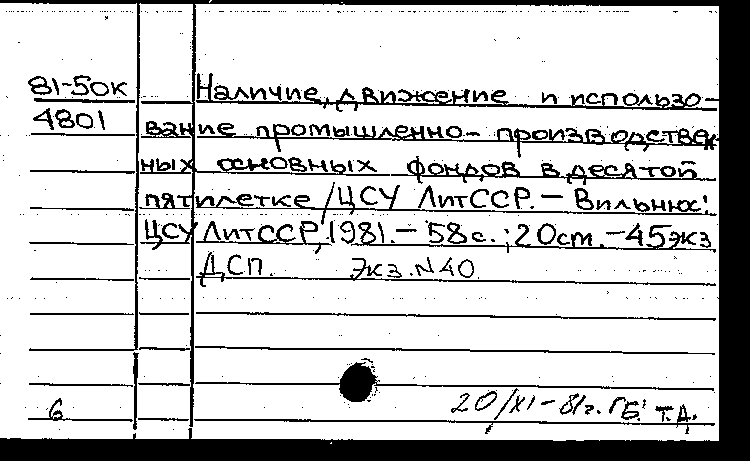 81-50к Наличие, движение и использо-
4801 вание промышленно-производствен-
ных основных фондов в десятой
пятилетке/ЦСУ ЛитССР. — Вильнюс:
ЦСУ ЛитССР, 1981. — 58с.; 20ст. — 45экз.
ДСП. Экз. N40.
6 20/XI-81г. ГБ. Т.Д.